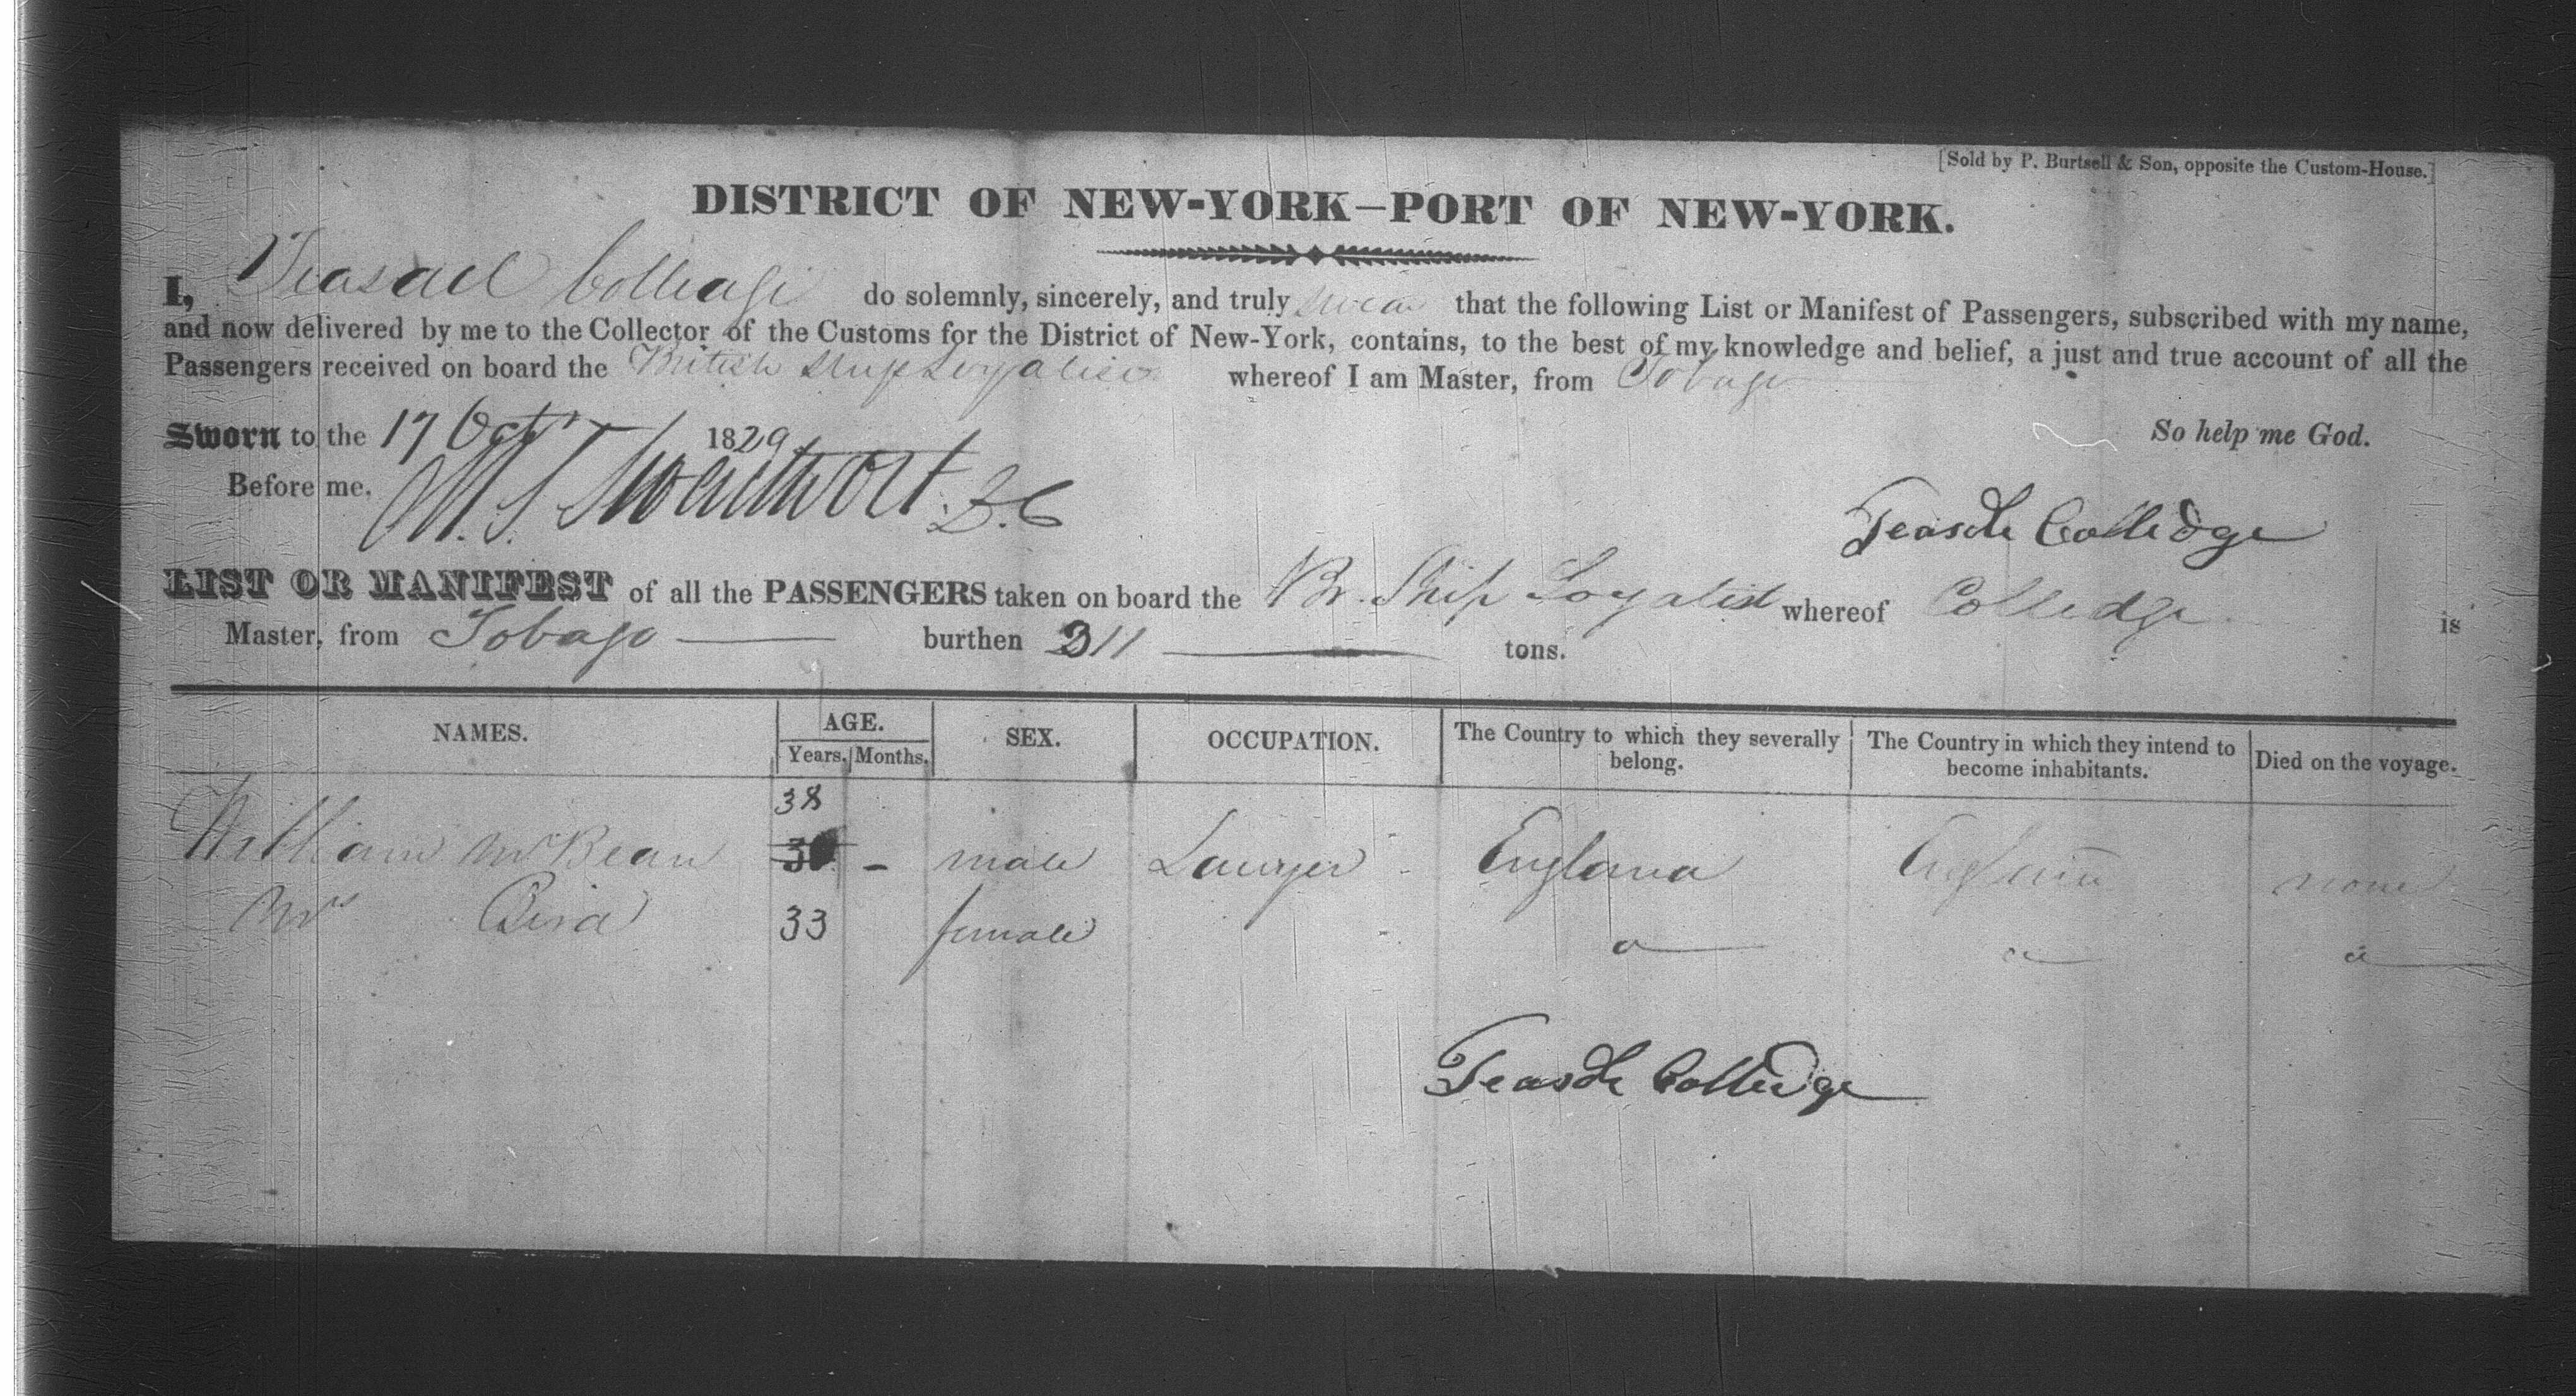 [Sold by P. Burtsell & Son, opposite the Custom-House.]
DISTRICT OF NEW-YORK—PORT OF NEW-YORK.
I, Teasdel Colledge do solemnly, sincerely, and truly swear that the following List or Manifest of Passengers, subscribed with my name,
and now delivered by me to the Collector of the Customs for the District of New-York, contains, to the best of my knowledge and belief, a just and true account of all the
Passengers received on board the British Ship Loyalist whereof I am Master, from Tobago
Sworn to the 17 Oct 1829 So help me God.
Before me, M. S. Swartwout D.C
Teasdle Colledge
LIST OR MANIFEST of all the PASSENGERS taken on board the Br. Ship Loyalist whereof Colledge is
Master, from Tobago burthen 311 tons.
NAMES. AGE. SEX. OCCUPATION. The Country to which they severally belong. The Country in which they intend to become inhabitants. Died on the voyage.
Years. Months.
38
William McBean - male Lawyer England England none
Mrs Bird 33 female do do do
Teasdle Colledge